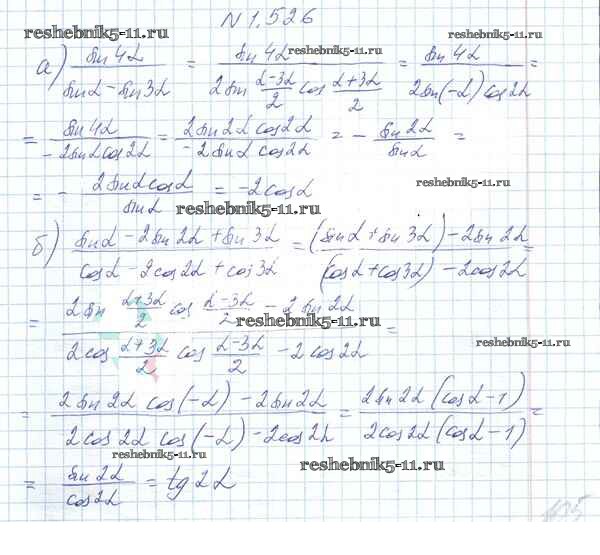 N 1.526
reshebnik5-11.ru
reshebnik5-11.ru
а) sin 4α / (sin α − sin 3α) = sin 4α / (2 sin (α−3α)/2 cos (α+3α)/2) = sin 4α / (2 sin(−α) cos 2α) =
= sin 4α / (−2 sin α cos 2α) = 2 sin 2α cos 2α / (−2 sin α cos 2α) = − sin 2α / sin α =
reshebnik5-11.ru
= − 2 sin α cos α / sin α = −2 cos α
reshebnik5-11.ru
б) (sin α − 2 sin 2α + sin 3α) / (cos α − 2 cos 2α + cos 3α) = ((sin α + sin 3α) − 2 sin 2α) / ((cos α + cos 3α) − 2 cos 2α) =
= (2 sin (α+3α)/2 cos (α−3α)/2 − 2 sin 2α) / (2 cos (α+3α)/2 cos (α−3α)/2 − 2 cos 2α) =
reshebnik5-11.ru
reshebnik5-11.ru
= (2 sin 2α cos(−α) − 2 sin 2α) / (2 cos 2α cos(−α) − 2 cos 2α) = 2 sin 2α (cos α − 1) / (2 cos 2α (cos α − 1)) =
reshebnik5-11.ru
reshebnik5-11.ru
= sin 2α / cos 2α = tg 2α